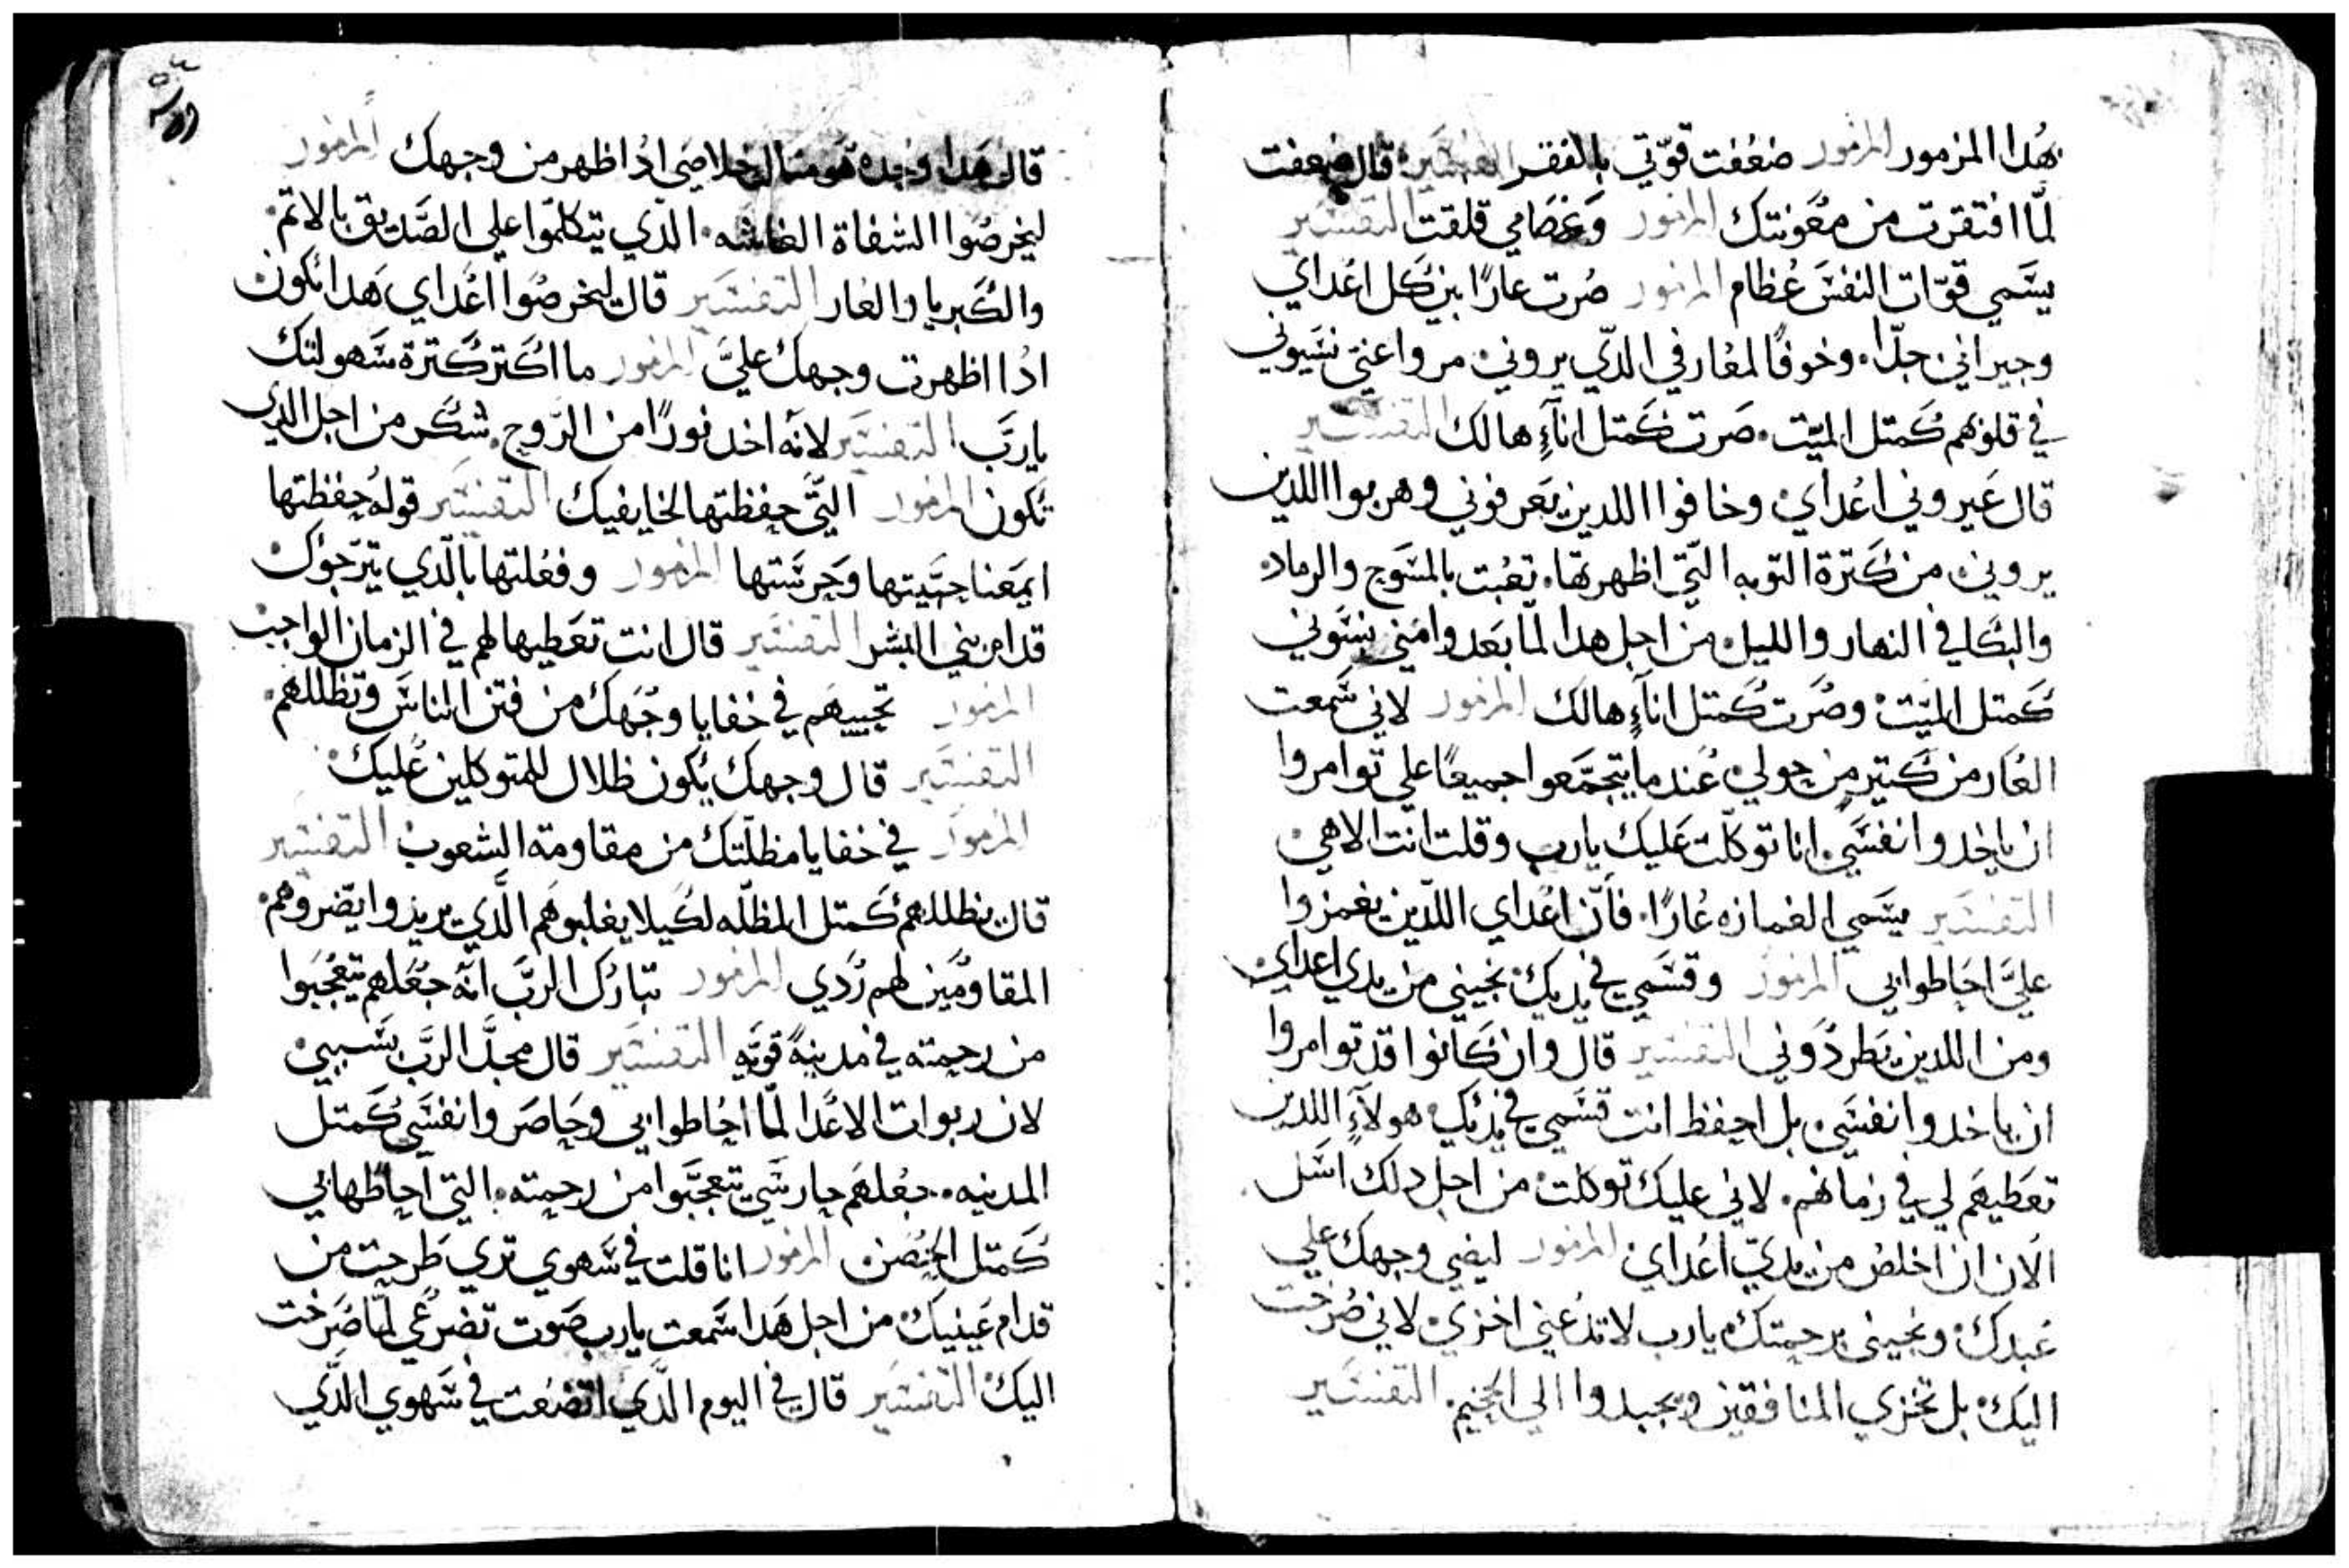 هدا المزمور المزمور ضعفت قوّتي بالفقر التفسير قال ضعفت
لمّا افتقرت من معونتك المزمور وعضامي قلقت التفسير
يسَمي قوّات النفسَ عظام المزمور صرت عارًا بين كل اعداي
وجيراني جدّا. وخوفًا لمعارفي الدّي يروني مروا عني نسَيوني
في قلوبهم كمتل الميّت. صرت كمتل انآءٍ هالك التفسير
قال عَيروني اعداي وخافوا اللدين يَعرفوني وهربوا اللدين
يروني من كترة التوبه التّي اظهرتها. تعبت بالمسَوح والرماد
والبكا في النهار والليل من اجل هدا لمّا بَعدوا مني نسَوني
كمتل الميّت وصرت كمتل انآءٍ هالك المزمور لاني سَمعت
العار من كتير من حولي عند ما يتجمّعوا جميعًا علي توامروا
ان ياخدوا نفسَي. انا توكلت عَليك يارب وقلت انت الاهي
التفسير يسَمي الغمازه عارًا. فانّ اعداي اللدين يغمزوا
عليَّ احَاطوا بي المزمور وقسَمي في يديك نجيني من يدي اعداي
ومن اللدين يَطردوني التفسير قال وان كانوا قد توامروا
ان ياخدوا نفسَي بل احفظ انت قسَمي في يديك هولآءِ اللدين
تعَطيهَم لي في زمانهم. لاني عليك توكلت من اجل دلك اسَل
الان ان اخلص من يديّ اعداي المزمور ليضي وجهك علي
عبدك ونجيني برحمتك يارب لا تدعني اخزي لاني صرخت
اليك بل تخزي المنافقين ويحبدوا الي الجحيم. التفسير
قال هَدا وحده هو متال خلاصَي ادا ظهر من وجهك المزمور
ليخرصُوا الشفاة الغاشه. الدّي يتكلمّوا علي الصَّديق بالاتم
والكبريا والعار التفسير قال ليخرصُوا اعَداي هَدا يكون
ادا اظهرت وجهك عليَّ المزمور ما اكتر كترة سَهولتك
يارَبَّ التفسير لانه اخد نورًا من الرّوح. شكر من اجل الدي
تكون المزمور التّي حفظتها لخايفيك التفسير قوله حفظتها
ايمَعنا خبَّيتها وَحرسَتها المزمور وفعلتها بالّدي يترّجوك
قدام بني البشر التفسير قال انت تعَطيها لهم في الزمان الواجب
المزمور تخبيهَم في خفايا وجَهك من فتن الناسَ وتظللهم
التفسير قال وجهك يكون ظلال للمتوكلين عليك
المزمور في خفايا مظلّتك من مقاومة الشعوب التفسير
قال يظللهم كمتل المظلّه لكيلا يغلبوهَم الدَّي يريدوا يضّروهم
المقاومَين لهم رَدي المزمور تبارك الربَّ انّه جعَلهم يتعجبَوا
من رحمته في مدينةً قويّه التفسير قال مجدَّ الربَّ بسَببي
لان ربوات الاعَدا لمّا احُاطوا بي وحَاصَروا نفسَي كمتل
المدينه. جعلهَم حارسَي يتعجبَّوا من رحمته. التي احاطها بي
كمتل الحَصن المزمور انا قلت في سَهوي تري طرحت من
قدام عَينيك من اجل هَدا سَمعت يارب صَوت تضرعي لمّا صَرخت
اليك التفسير قال في اليوم الدَّي اتضعَت في سَهوي الدَّي